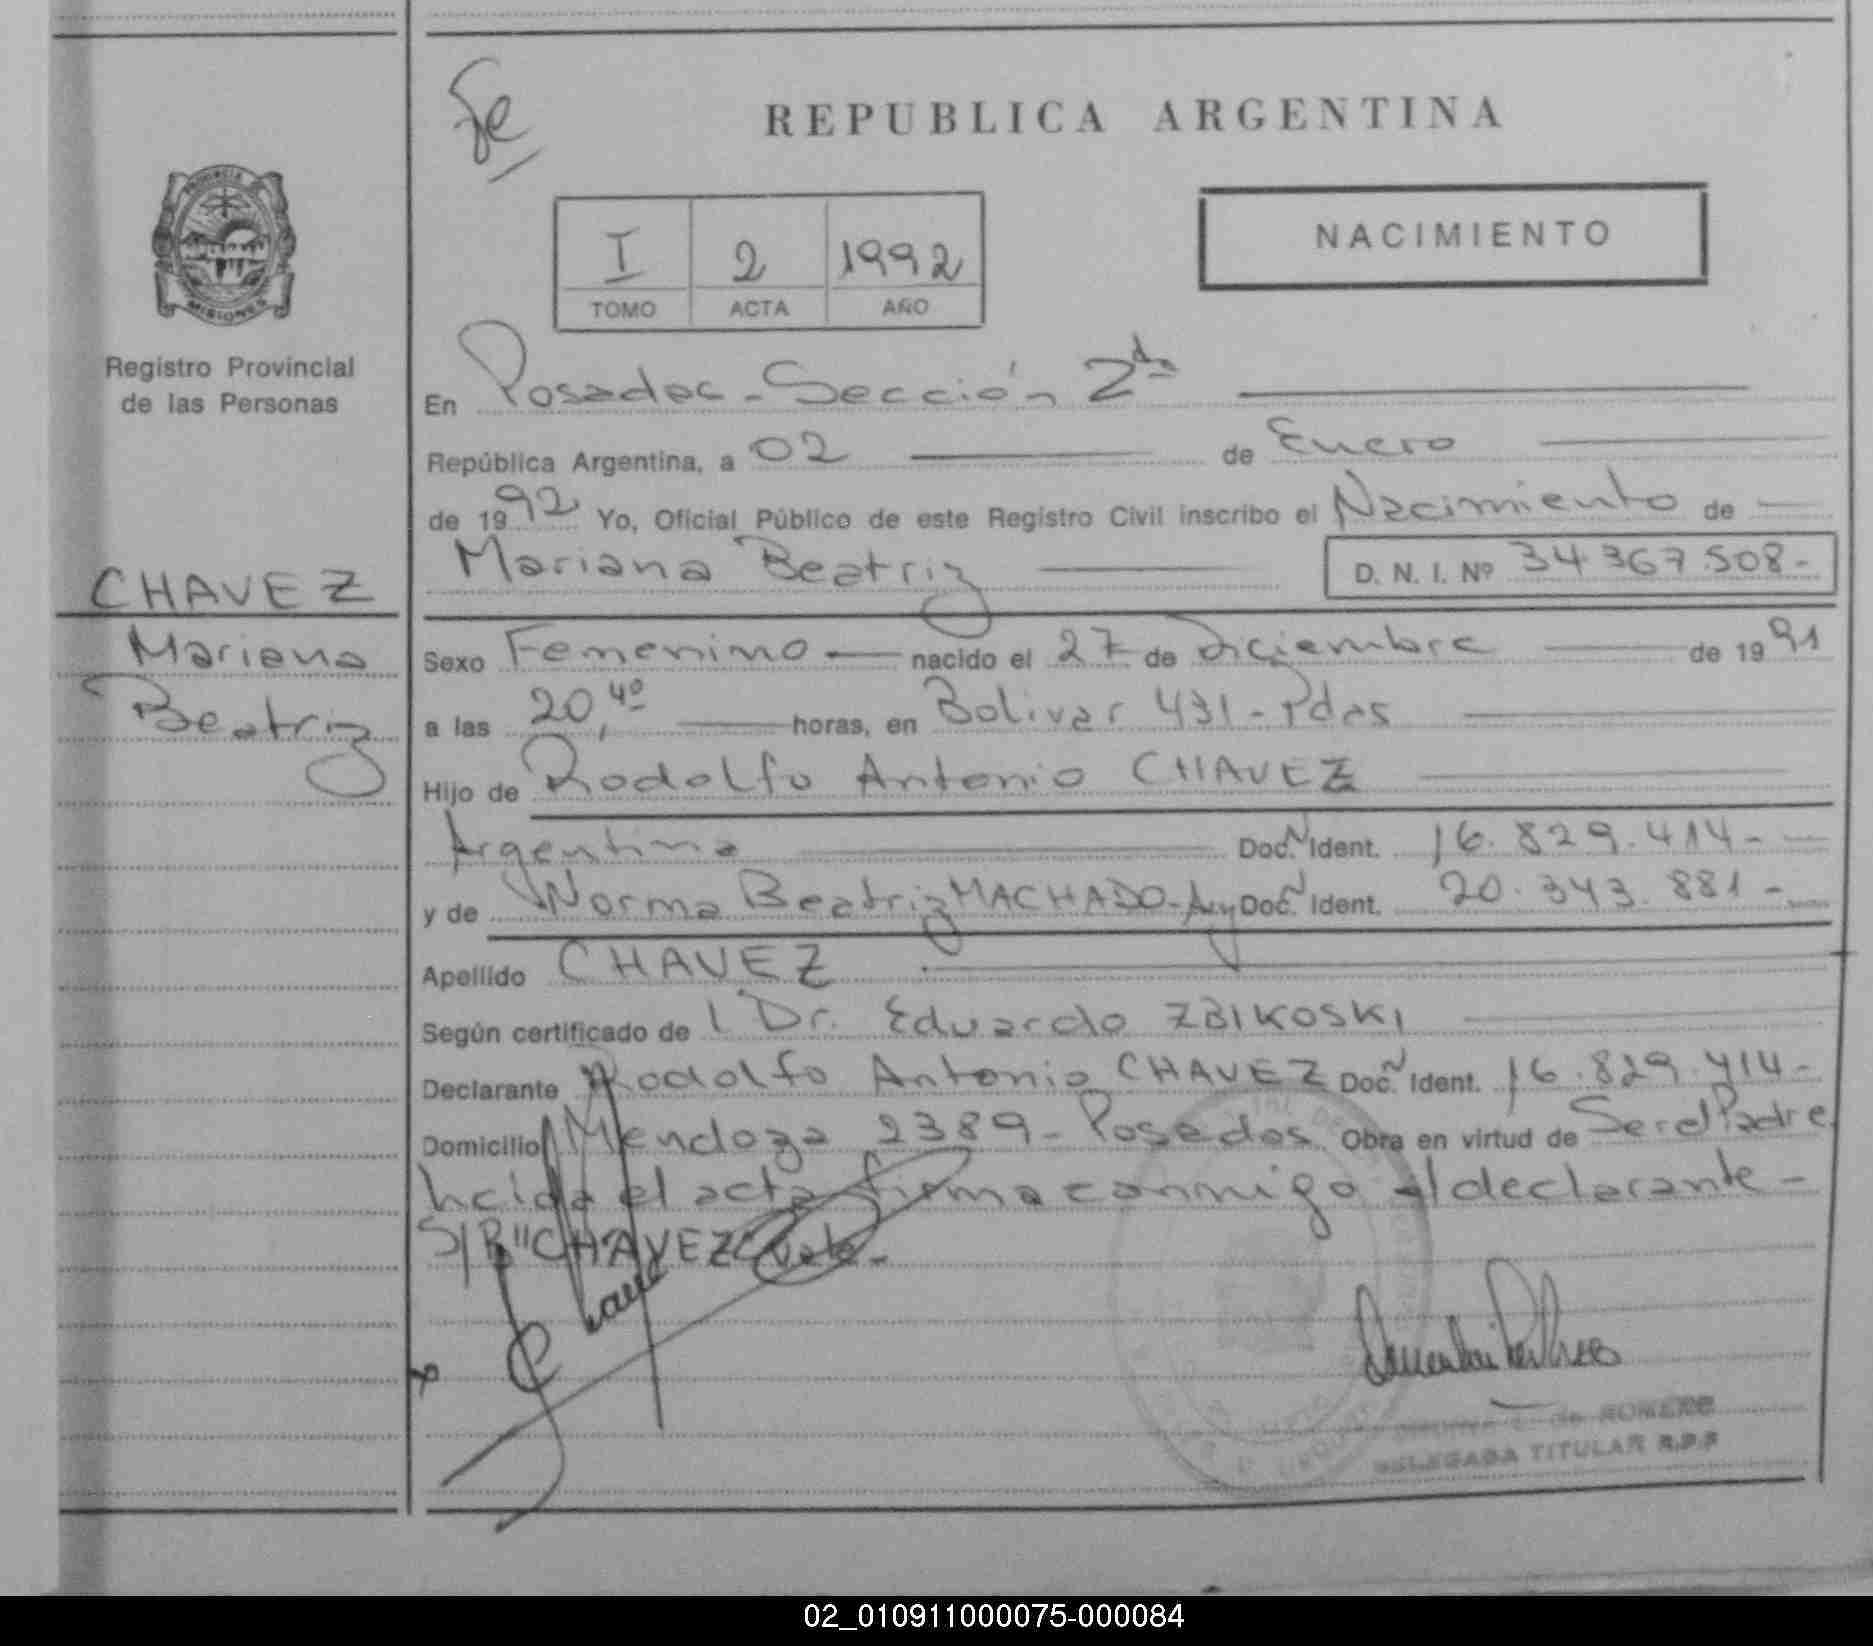 Fe
REPUBLICA ARGENTINA
PROVINCIA DE
MISIONES
I 2 1992
TOMO ACTA AÑO
NACIMIENTO
Registro Provincial
de las Personas
En Posadas - Sección 2da
República Argentina, a 02 de Enero
de 1992 Yo, Oficial Público de este Registro Civil inscribo el Nacimiento de
Mariana Beatriz D. N. I. Nº 34.367.508-
CHAVEZ
Mariana
Beatriz
Sexo Femenino nacido el 27 de Diciembre de 1991
a las 20,40 horas, en Bolivar 431 - Pdas
Hijo de Rodolfo Antonio CHAVEZ
Argentina Doc. N Ident. 16.829.414-
y de Norma Beatriz MACHADO - Arg Doc. N Ident. 20.343.881-
Apellido CHAVEZ
Según certificado de l Dr. Eduardo ZBIKOSKI
Declarante Rodolfo Antonio CHAVEZ Doc. N Ident. 16.829.414-
Domicilio Mendoza 2389 - Posadas Obra en virtud de Ser el Padre
leida el acta firma conmigo el declarante -
S/R "CHAVEZ" Vale -
de ROMERO
DELEGADA TITULAR R.P.P
02_010911000075-000084